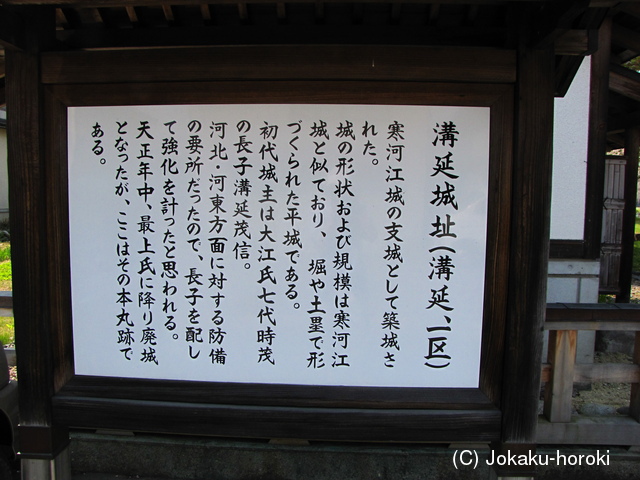 溝延城址(溝延、一区)
寒河江城の支城として築城さ
れた。
城の形状および規模は寒河江
城と似ており、堀や土塁で形
づくられた平城である。
初代城主は大江氏七代時茂
の長子溝延茂信。
河北・河東方面に対する防備
の要所だったので、長子を配し
て強化を計ったと思われる。
天正年中、最上氏に降り廃城
となったが、ここはその本丸跡で
ある。
(C) Jokaku-horoki